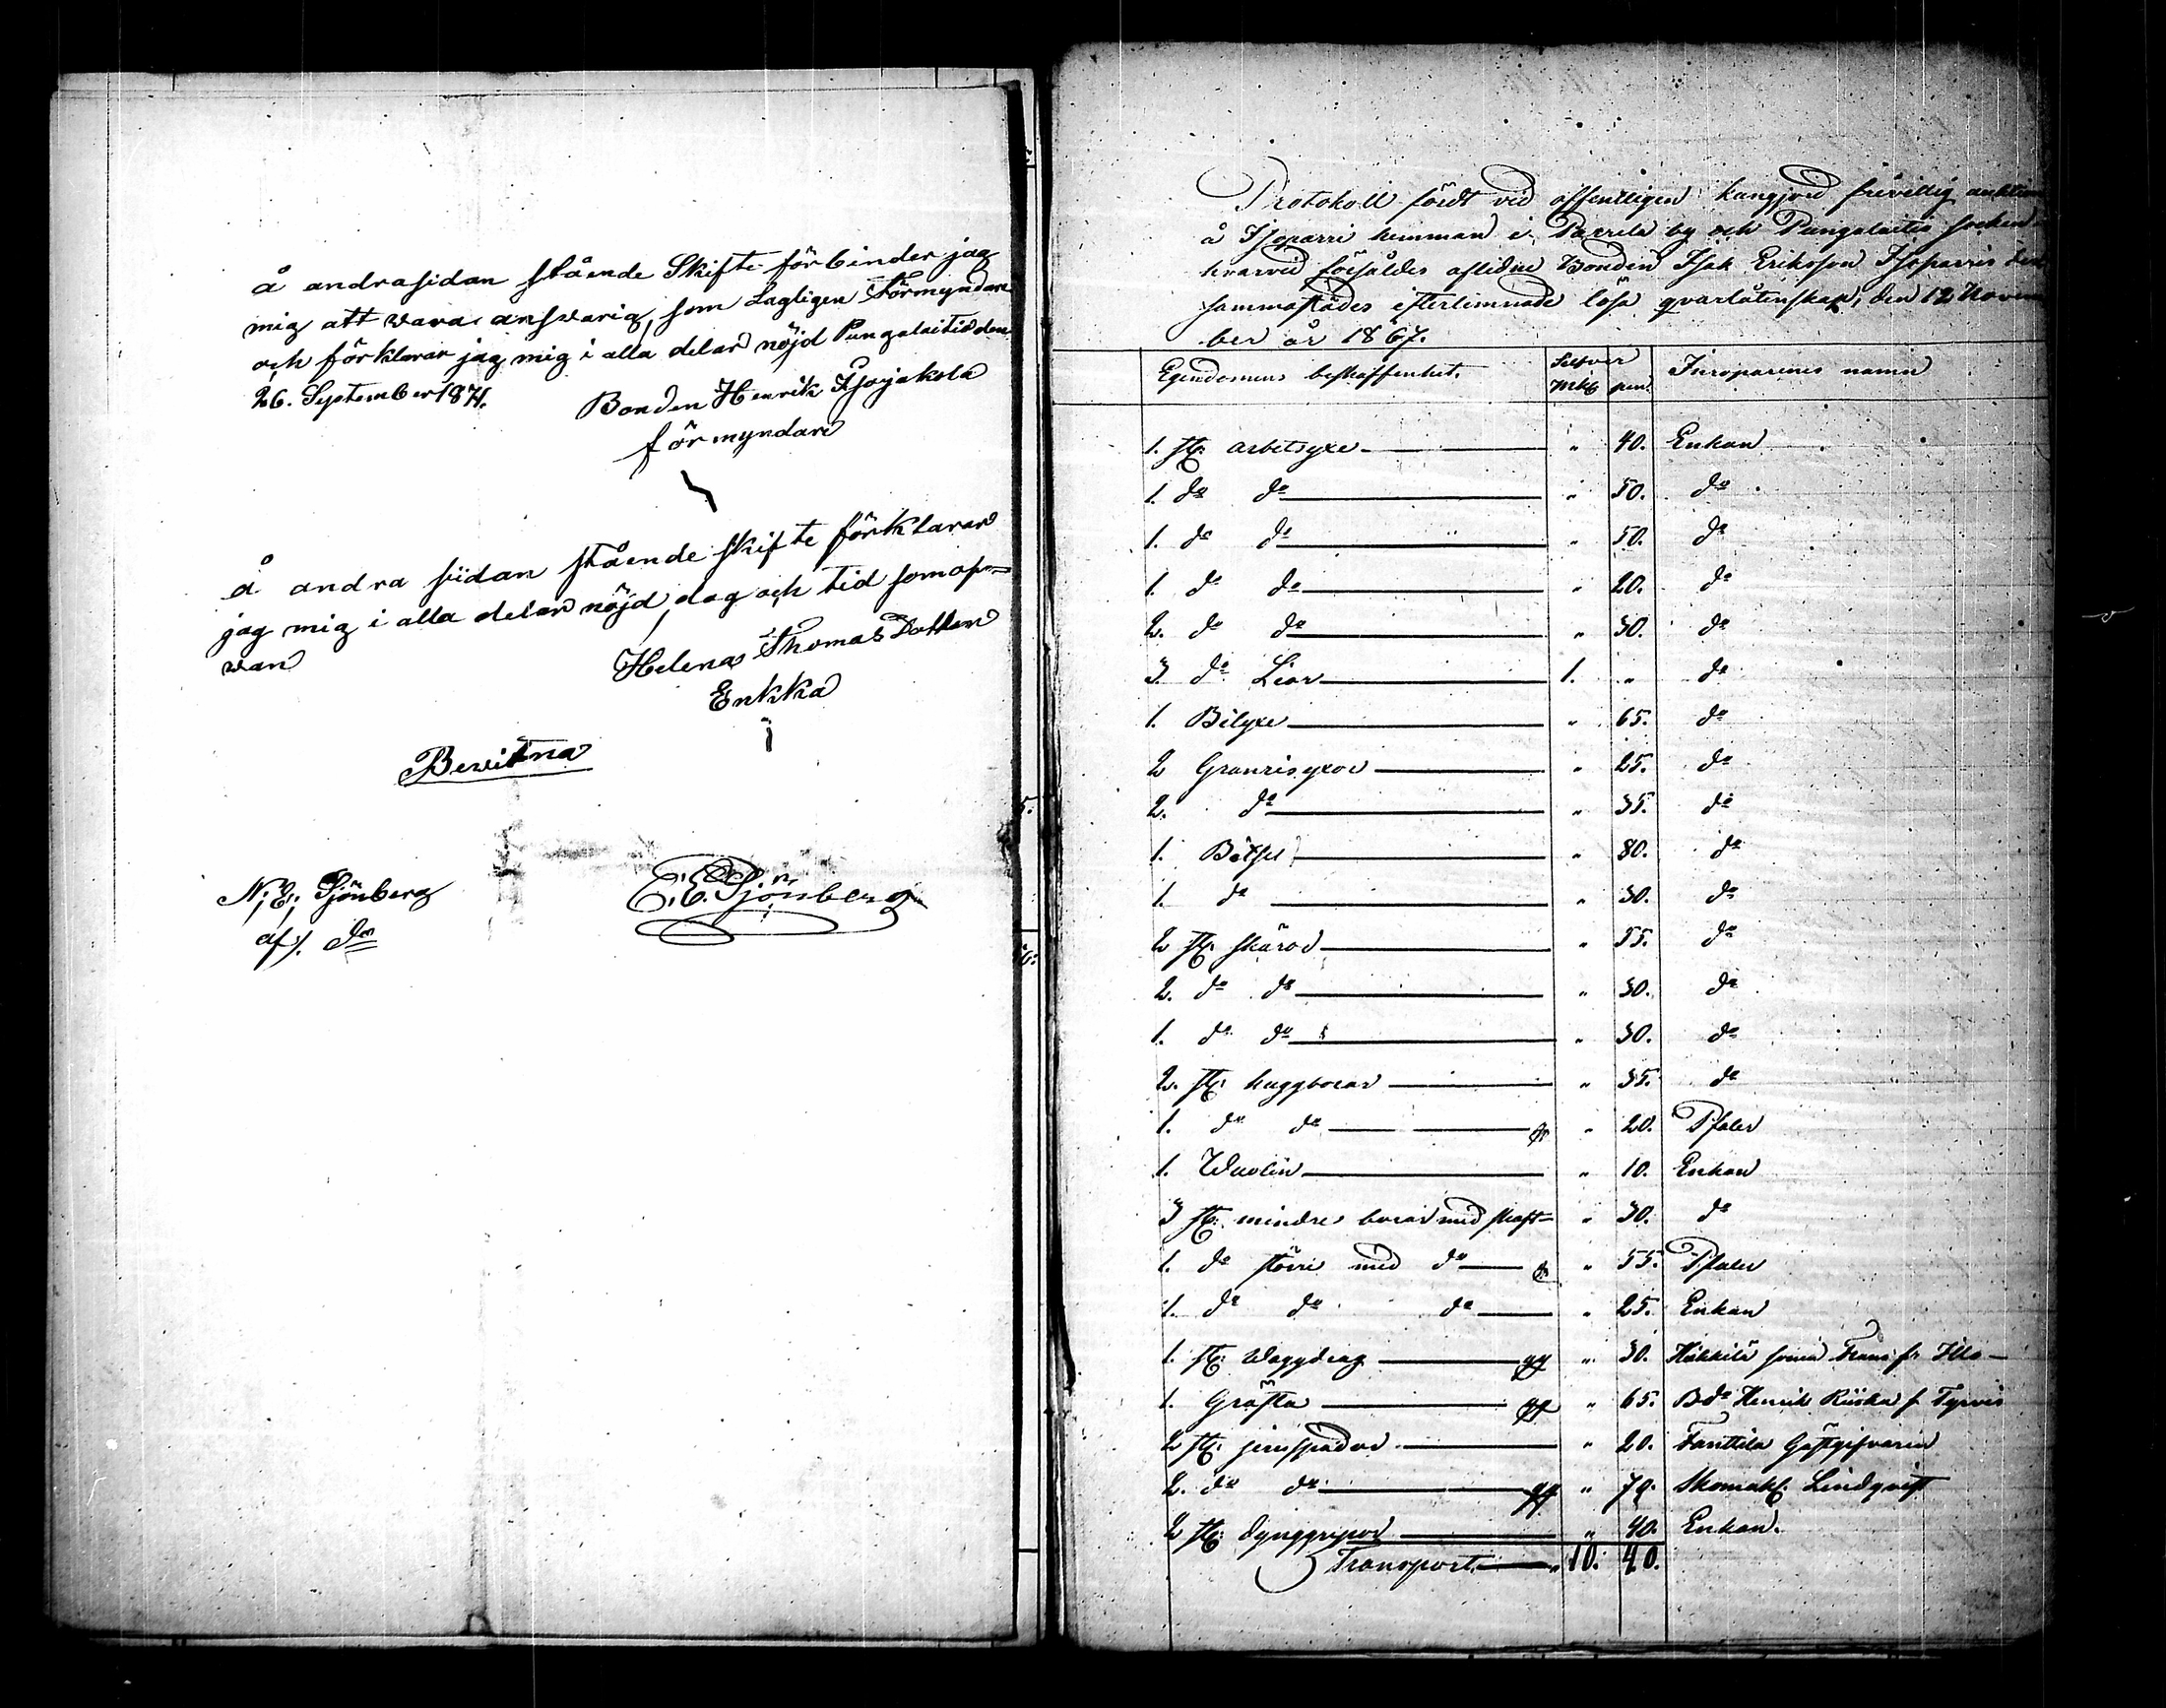 å andrasidan stående Skifte förbinder jag
mig att vara answarig, som Lagligen Förmyndare
och förklarar jag mig i alla delar nöjd Pungalaitio den
26. September 1871.
Bonden Henrik Isojakola
förmyndare
å andra sidan stående skifte förklarar
jag mig i alla delar nöjd, dag och tid som of=
van
Helena Thomas Dotter
Enkka
Bewitna
N. E. Sjönberg
E. E. Sjönberg
Protokoll fördt vid offentligen kungjord frivillig auktion
å Isoparri hemman i by och Pungalaitio socken
hvarvid försåldes aflidne Bonden Isak Eriksson Isoparris
sammastädes efterlemnade lösa qvarlåtenskap, den 12 Novem
ber år 1867.
Egendomens beskaffenhet. Silfver Mkk pen. Inroparenes namn
1. st. arbetsyxa " 40. Enkan
1. do do " 50. do
1. do do " 50. do
1. do do " 20. do
2. do do " 30. do
3. do Liar 1. " do
1. Bilyxa " 65. do
2 Granrisyxor " 25. do
2. do " 35. do
1. Betsel " 80. do
1. do " 30. do
2 st. skäror " 55. do
2. do do " 30. do
1. do do " 30. do
2. st. huggborar " 35. do
1. do do " 20. Pfaler
1. Wuolin " 10. Enkan
3 st. mindre borar med skaft " 30. do
1. do större med do " 55. Pfaler
1. do do do " 25. Enkan
1. st. " 30. Häkkilä
1. Gräfta " 65. Bdn Henrik f. Tyrvis
2 st. jernspadar " 20. Fanttila Gästgifvaren
2. do do " 70. Skomak. Lindqvist
2 st. dynggrepar " 40. Enkan.
Transport " 10. 40.